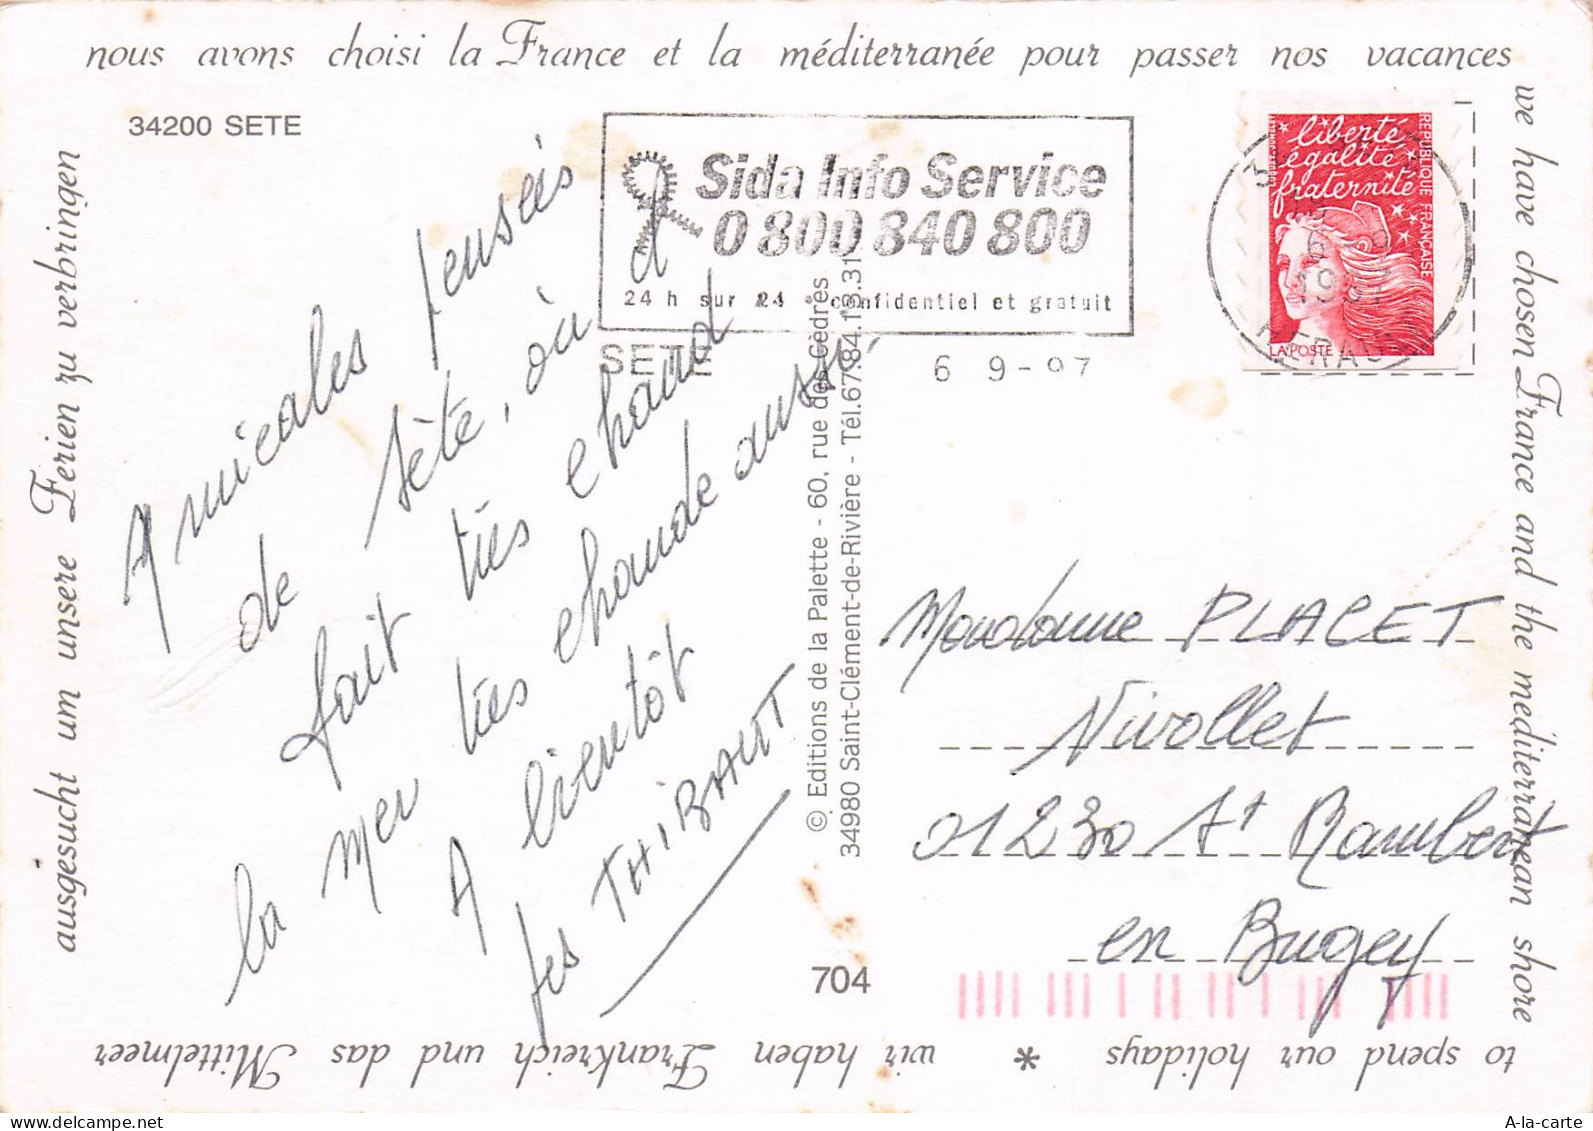 nous avons choisi la France et la méditerranée pour passer nos vacances
we have chosen France and the méditerranean shore
to spend our holidays * wir haben Frankreich und das Mittelmeer
ausgesucht um unsere Ferien zu verbringen
34200 SETE
Sida Info Service
0 800 840 800
24 h sur 24 • confidentiel et gratuit
SETE 6 9-97
liberté
égalité
fraternité
REPUBLIQUE FRANÇAISE
LA POSTE
6 9
1997
HERAULT
Amicales pensées
de Sète, où il
fait très chaud
la mer très chaude aussi.
A bientôt
les THIBAUT
© Editions de la Palette - 60, rue des Cèdres
34980 Saint-Clément-de-Rivière - Tél.67.84.13.31
704
Madame PLACET
Nivollet
01230 St Rambert
en Bugey
A-la-carte